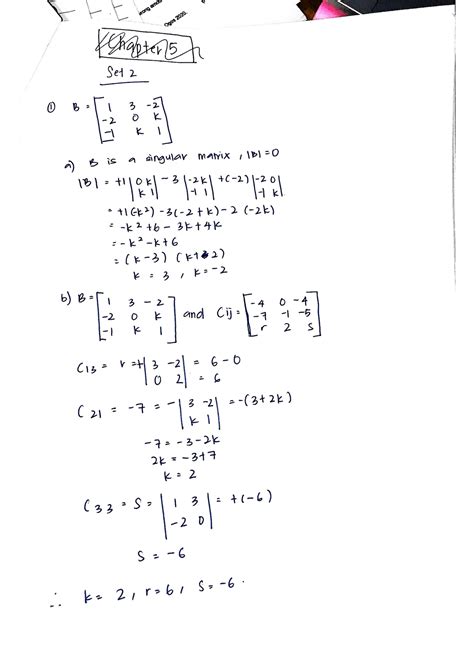 Chapter 5
Set 2
① B = [1 3 -2
-2 0 k
-1 k 1]
a) B is a singular matrix, |B| = 0
|B| = +1 |0 k
k 1| - 3 |-2 k
-1 1| + (-2) |-2 0
-1 k|
= +1(-k²) - 3(-2 + k) - 2(-2k)
= -k² + 6 - 3k + 4k
= -k² - k + 6
= (k - 3) (k + 2)
k = 3, k = -2
b) B = [1 3 -2
-2 0 k
-1 k 1] and Cij = [-4 0 -4
-7 -1 -5
r 2 s]
C13 = r = + |3 -2
0 2| = 6 - 0
= 6
C21 = -7 = - |3 -2
k 1| = -(3 + 2k)
-7 = -3 - 2k
2k = -3 + 7
k = 2
C33 = S = |1 3
-2 0| = +(-6)
S = -6
∴ k = 2, r = 6, S = -6.